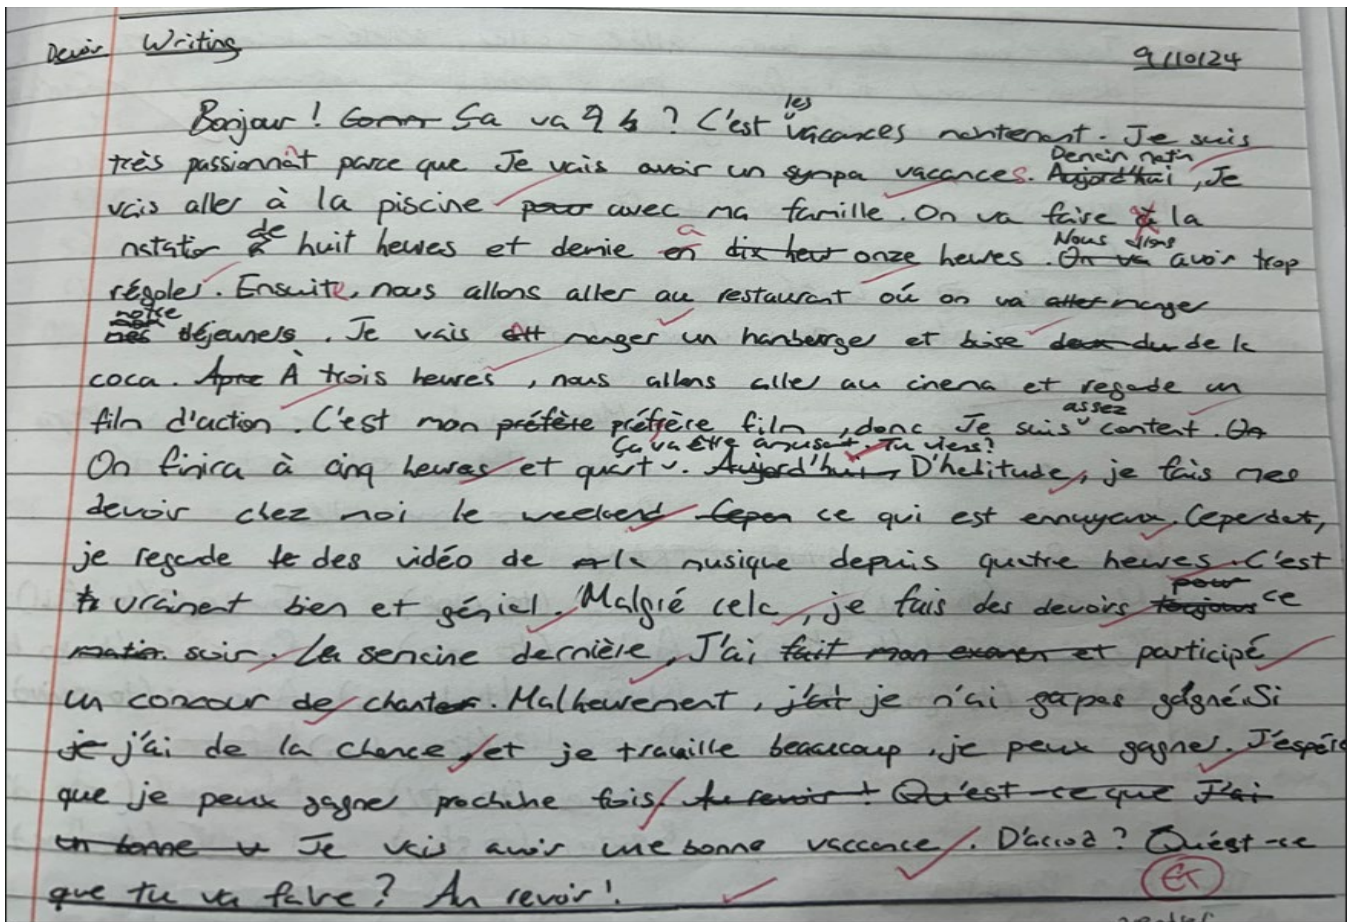 Devoir Writing 9/10/24
Bonjour ! Ça va ? C'est les vacances maintenant. Je suis
très passionnât parce que Je vais avoir un sympa vacances. Demain matin, Je
vais aller à la piscine avec ma famille. On va faire la
natation de huit heures et demie à onze heures. Nous allons avoir trop
régoler. Ensuite, nous allons aller au restaurant où on va manger
notre déjeuners. Je vais manger un hamberger et boire de la
coca. À trois heures, nous allons aller au cinema et regade un
film d'action. C'est mon préfère film, donc Je suis assez content.
On finira à cinq heures et quart. Ça va être amusant. Tu viens? D'habitude, je fais mes
devoir chez moi le weekend ce qui est ennuyeux. Cependat,
je regade des vidéo de la musique depuis quatre heures. C'est
vraiment bien et géniel. Malgré cela, je fais des devoirs ce
soir. La semaine dernière, J'ai participé
un concour de chanter. Malheurement, je n'ai pas gagné. Si
j'ai de la chance, et je travaille beaucoup, je peux gagner. J'espère
que je peux gagner prochine fois.
Je vais avoir une bonne vaccance. D'accod? Qu'est-ce
que tu va faire? Au revoir!